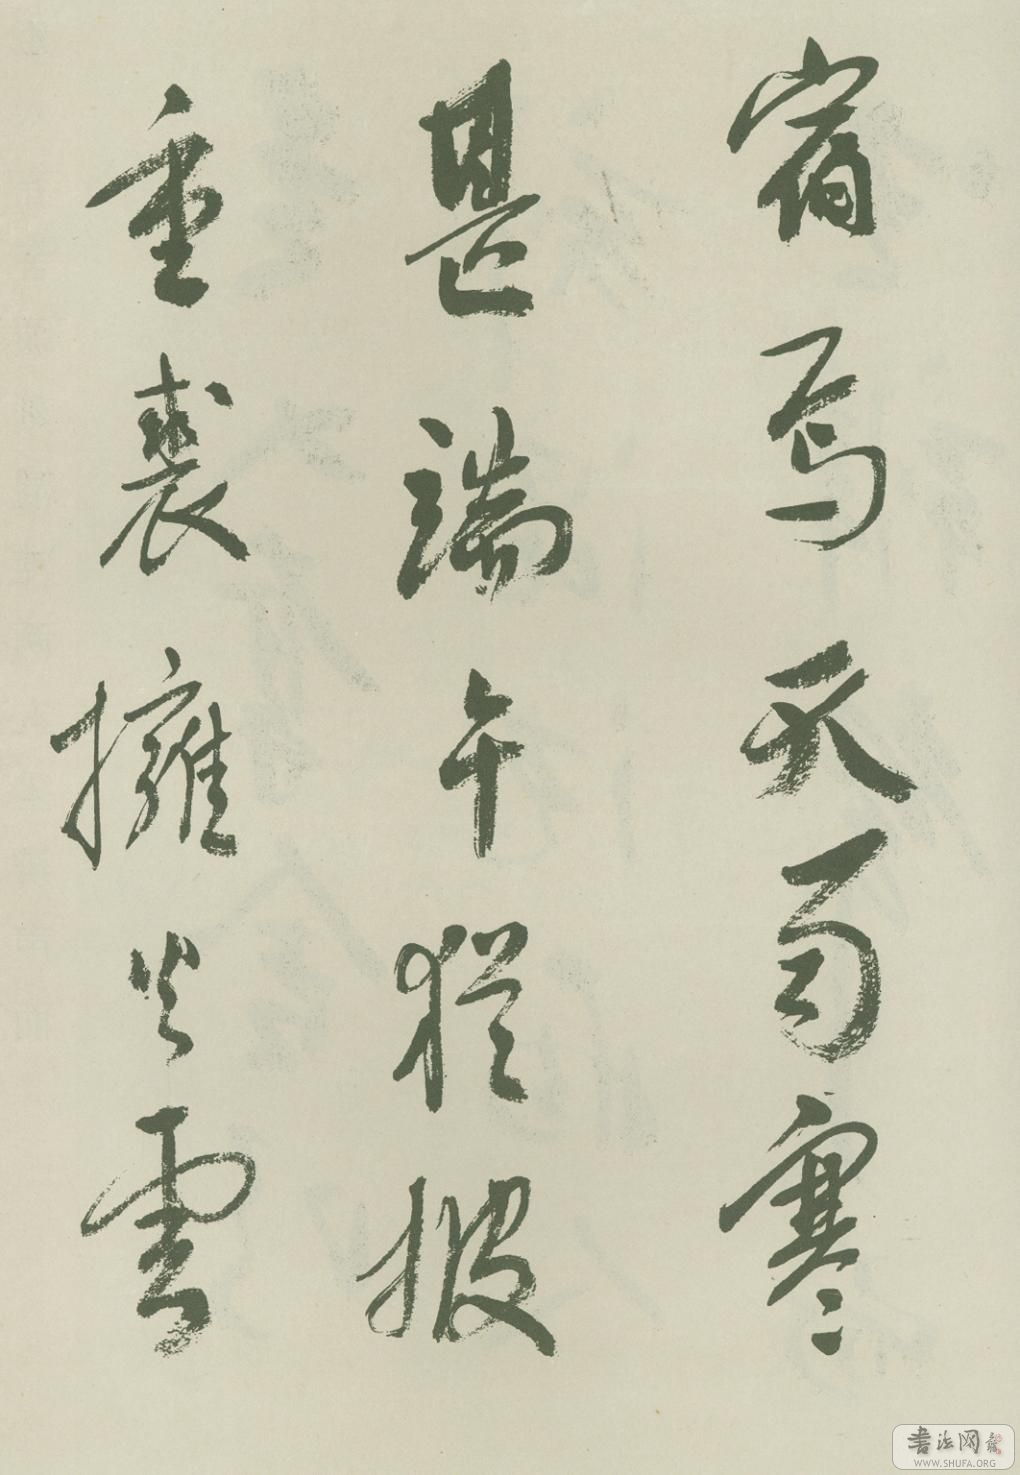 宿焉天苟寒
甚端午犹披
重裘擁火雲
書法网
WWW.SHUFA.ORG